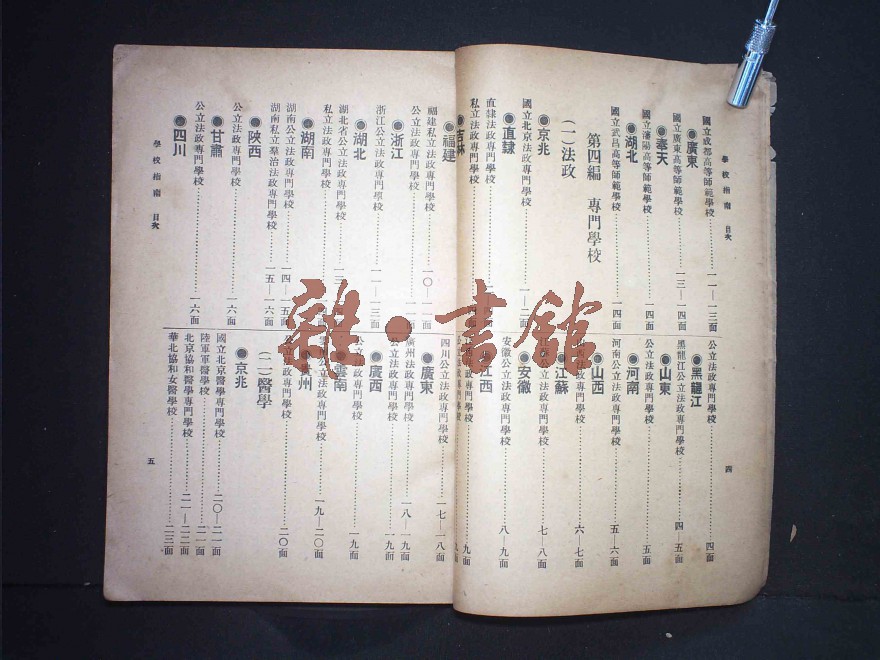 學校指南 目次
四
國立成都高等師範學校 一一—一三面
●廣東
國立廣東高等師範學校 一三—一四面
●奉天
國立瀋陽高等師範學校 一四面
●湖北
國立武昌高等師範學校 一四面
第四編 專門學校
(一)法政
●京兆
國立北京法政專門學校 一—二面
●直隸
直隸法政專門學校
私立法政專門學校
●吉林
公立法政專門學校 四面
●黑龍江
黑龍江公立法政專門學校 四—五面
●山東
公立法政專門學校 五面
●河南
河南公立法政專門學校 五—六面
●山西
山西公立法政專門學校 六—七面
●江蘇
公立法政專門學校 七—八面
●安徽
安徽公立法政專門學校 八—九面
●江西
公立法政專門學校 九面
公立法政專門學校 九面
●福建
福建私立法政專門學校 一〇—一一面
公立法政專門學校 一一面
●浙江
浙江公立法政專門學校 一一—一三面
●湖北
湖北省公立法政專門學校
私立法政專門學校
●湖南
湖南公立法政專門學校 一四—一五面
湖南私立羣治法政專門學校 一五—一六面
●陝西
公立法政專門學校 一六面
●甘肅
公立法政專門學校 一六面
●四川
四川公立法政專門學校 一七—一八面
●廣東
廣州法政專門學校 一八—一九面
公立法政專門學校 一九面
●廣西
公立法政專門學校 一九面
●雲南
公立法政專門學校 一九—二〇面
州
公立法政專門學校 二〇面
(二)醫學
●京兆
國立北京醫學專門學校 二〇—二一面
陸軍軍醫學校 二一面
北京協和醫學專門學校 二一—二二面
華北協和女醫學校 二三面
學校指南 目次
五
雜·書館